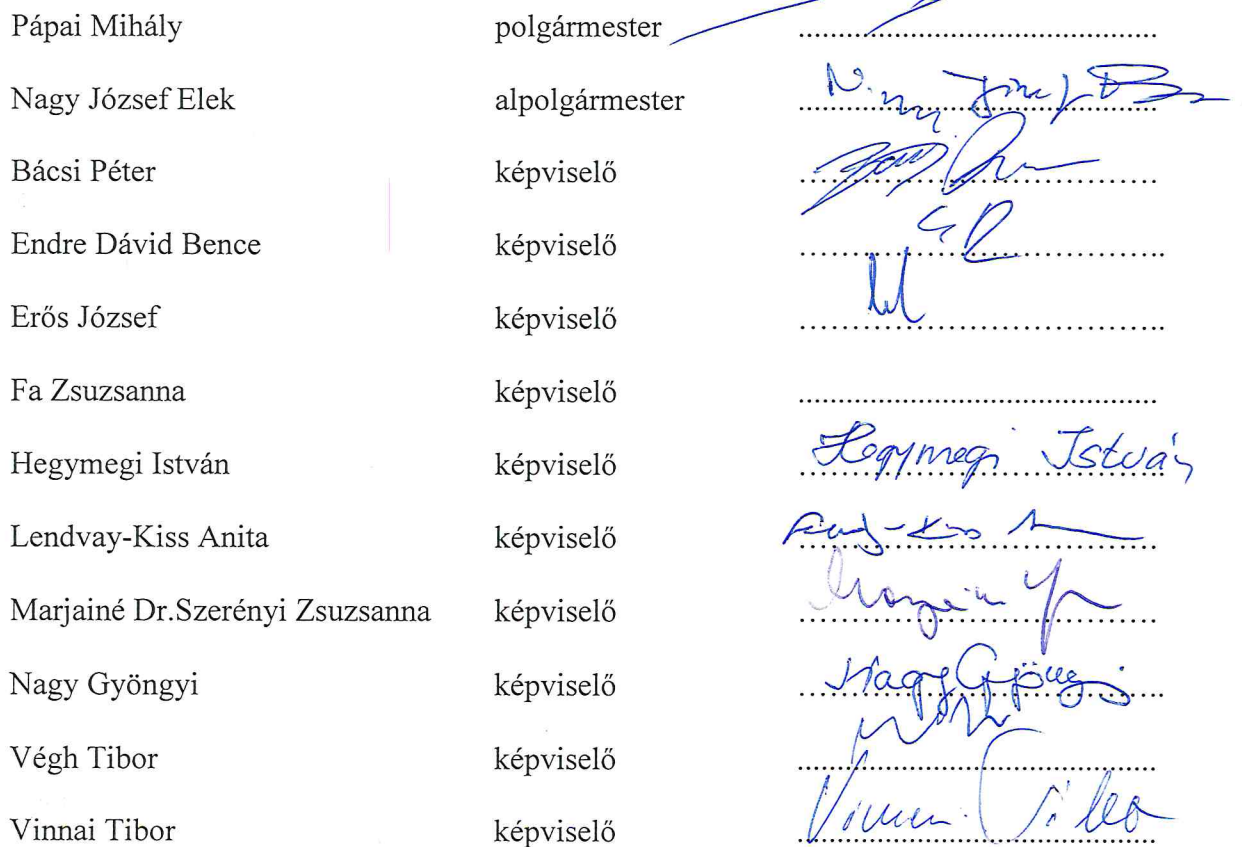 Pápai Mihály polgármester ................................................
Nagy József Elek alpolgármester ................................................ Nagy József
Bácsi Péter képviselő ................................................
Endre Dávid Bence képviselő ................................................
Erős József képviselő ................................................
Fa Zsuzsanna képviselő ................................................
Hegymegi István képviselő ................................................ Hegymegi István
Lendvay-Kiss Anita képviselő ................................................ -Kiss
Marjainé Dr.Szerényi Zsuzsanna képviselő ................................................
Nagy Gyöngyi képviselő ................................................ Nagy Gyöngyi
Végh Tibor képviselő ................................................
Vinnai Tibor képviselő ................................................ Vinnai Tibor